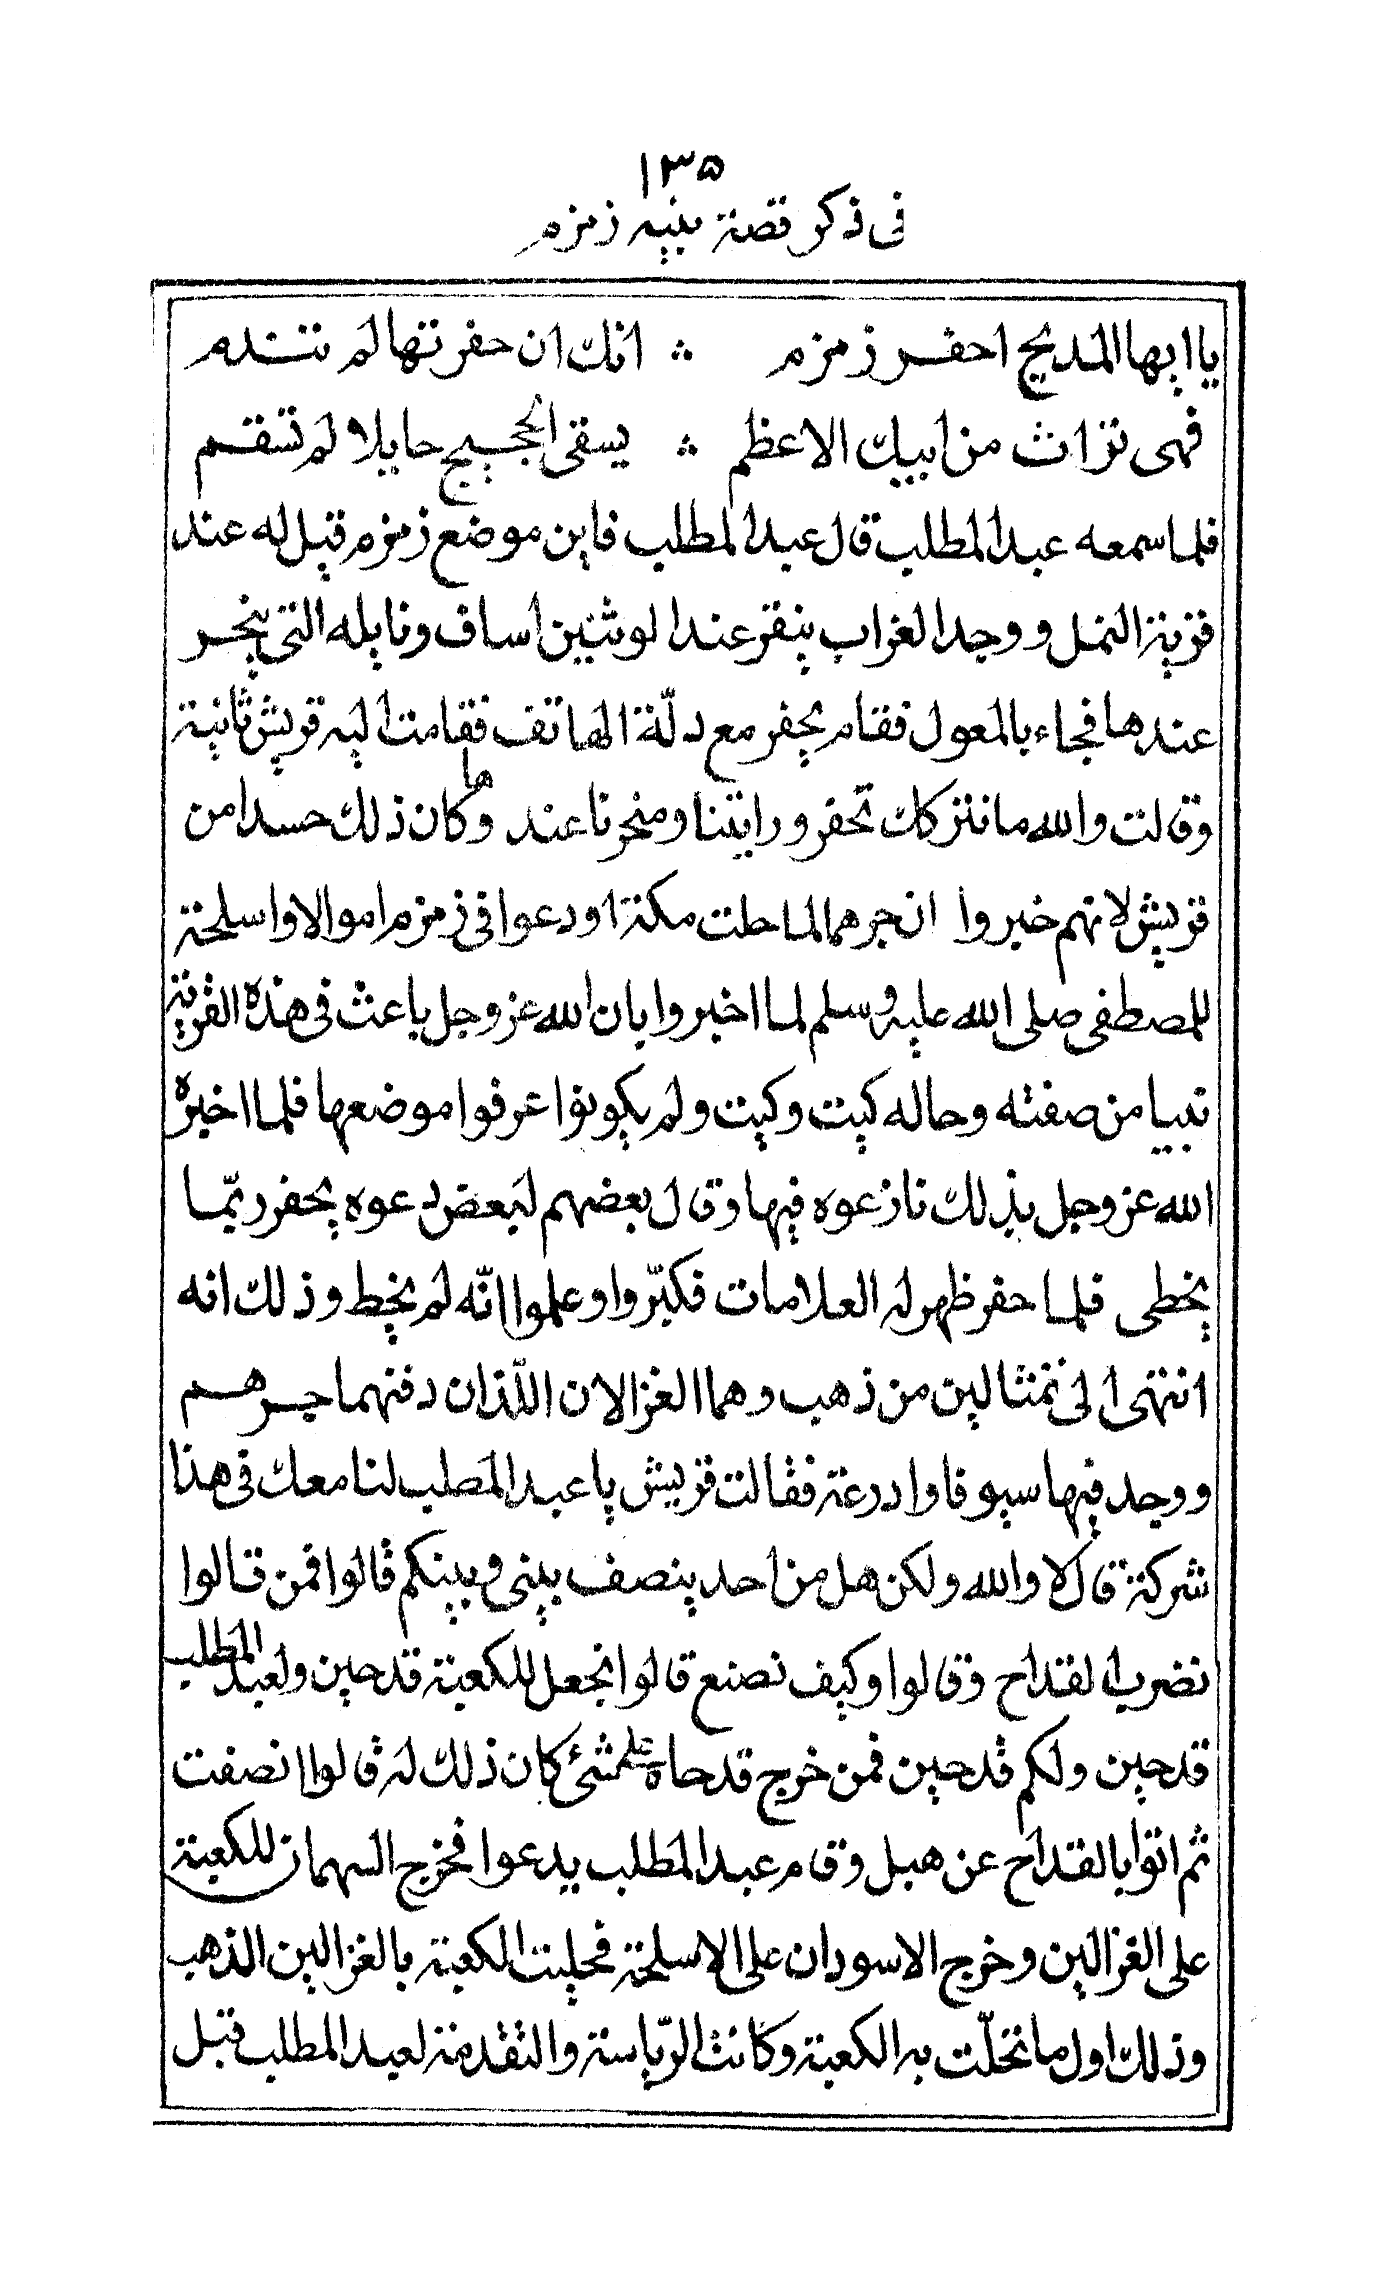 ١٣٥
فى ذكر قصة بنيه زمزم
يا ايها المديح احفر زمزم ؞ انك ان حفرتها لم تندم
فهى تراث من ابيك الاعظم ؞ يسقى الحجيج حايلا لم تسقم
فلما سمعه عبد المطلب قال عبد المطلب فاين موضع زمزم قيل له عند
قرية النمل ووجد الغراب ينقر عند الوثنين اساف ونايله التى ينحر
عندها فجاء بالمعول فقام يحفر مع دلّة الهاتف فقامت اليه قريش ثانية
وقالت والله ما نتركك تحفر ورايتنا ومنحرنا عندها وكان ذلك حسدا من
قريش لانهم خبروا ان جرهما لما حلت مكة اودعوا فى زمزم اموالا واسلحة
للمصطفى صلى الله عليه وسلم لما اخبروا بان الله عز وجل باعث فى هذه القرية
نبيا من صفته وحاله كيت وكيت ولم يكونوا عرفوا موضعها فلما اخبره
الله عز وجل بذلك نازعوه فيها وقال بعضهم لبعض دعوه يحفر ربّما
يخطى فلما حفر ظهر له العلامات فكبّروا وعلموا انّه لم يخط وذلك انه
انتهى الى تمثالين من ذهب وهما الغزالان اللّذان دفنهما جرهم
ووجد فيها سيوفا وادرعة فقالت قريش يا عبد المطلب لنا معك فى هذا
شركة قال لا والله ولكن هل من احد ينصف بينى وبينكم قالوا فمن قالوا
نضرب القداح وقالوا وكيف نصنع قالوا نجعل للكعبة قدحين ولعبد المطلب
قدحين ولكم قدحين فمن خرج قدحاه على شئ كان ذلك له قالوا انصفت
ثم اتوا بالقداح عن هبل وقام عبد المطلب يدعوا فخرج السهمان للكعبة
على الغزالين وخرج الاسودان على الاسلحة فحليت الكعبة بالغزالين الذهب
وذلك اول ما تحلّت به الكعبة وكانت الرّياسة والتقدمة لعبد المطلب قبل